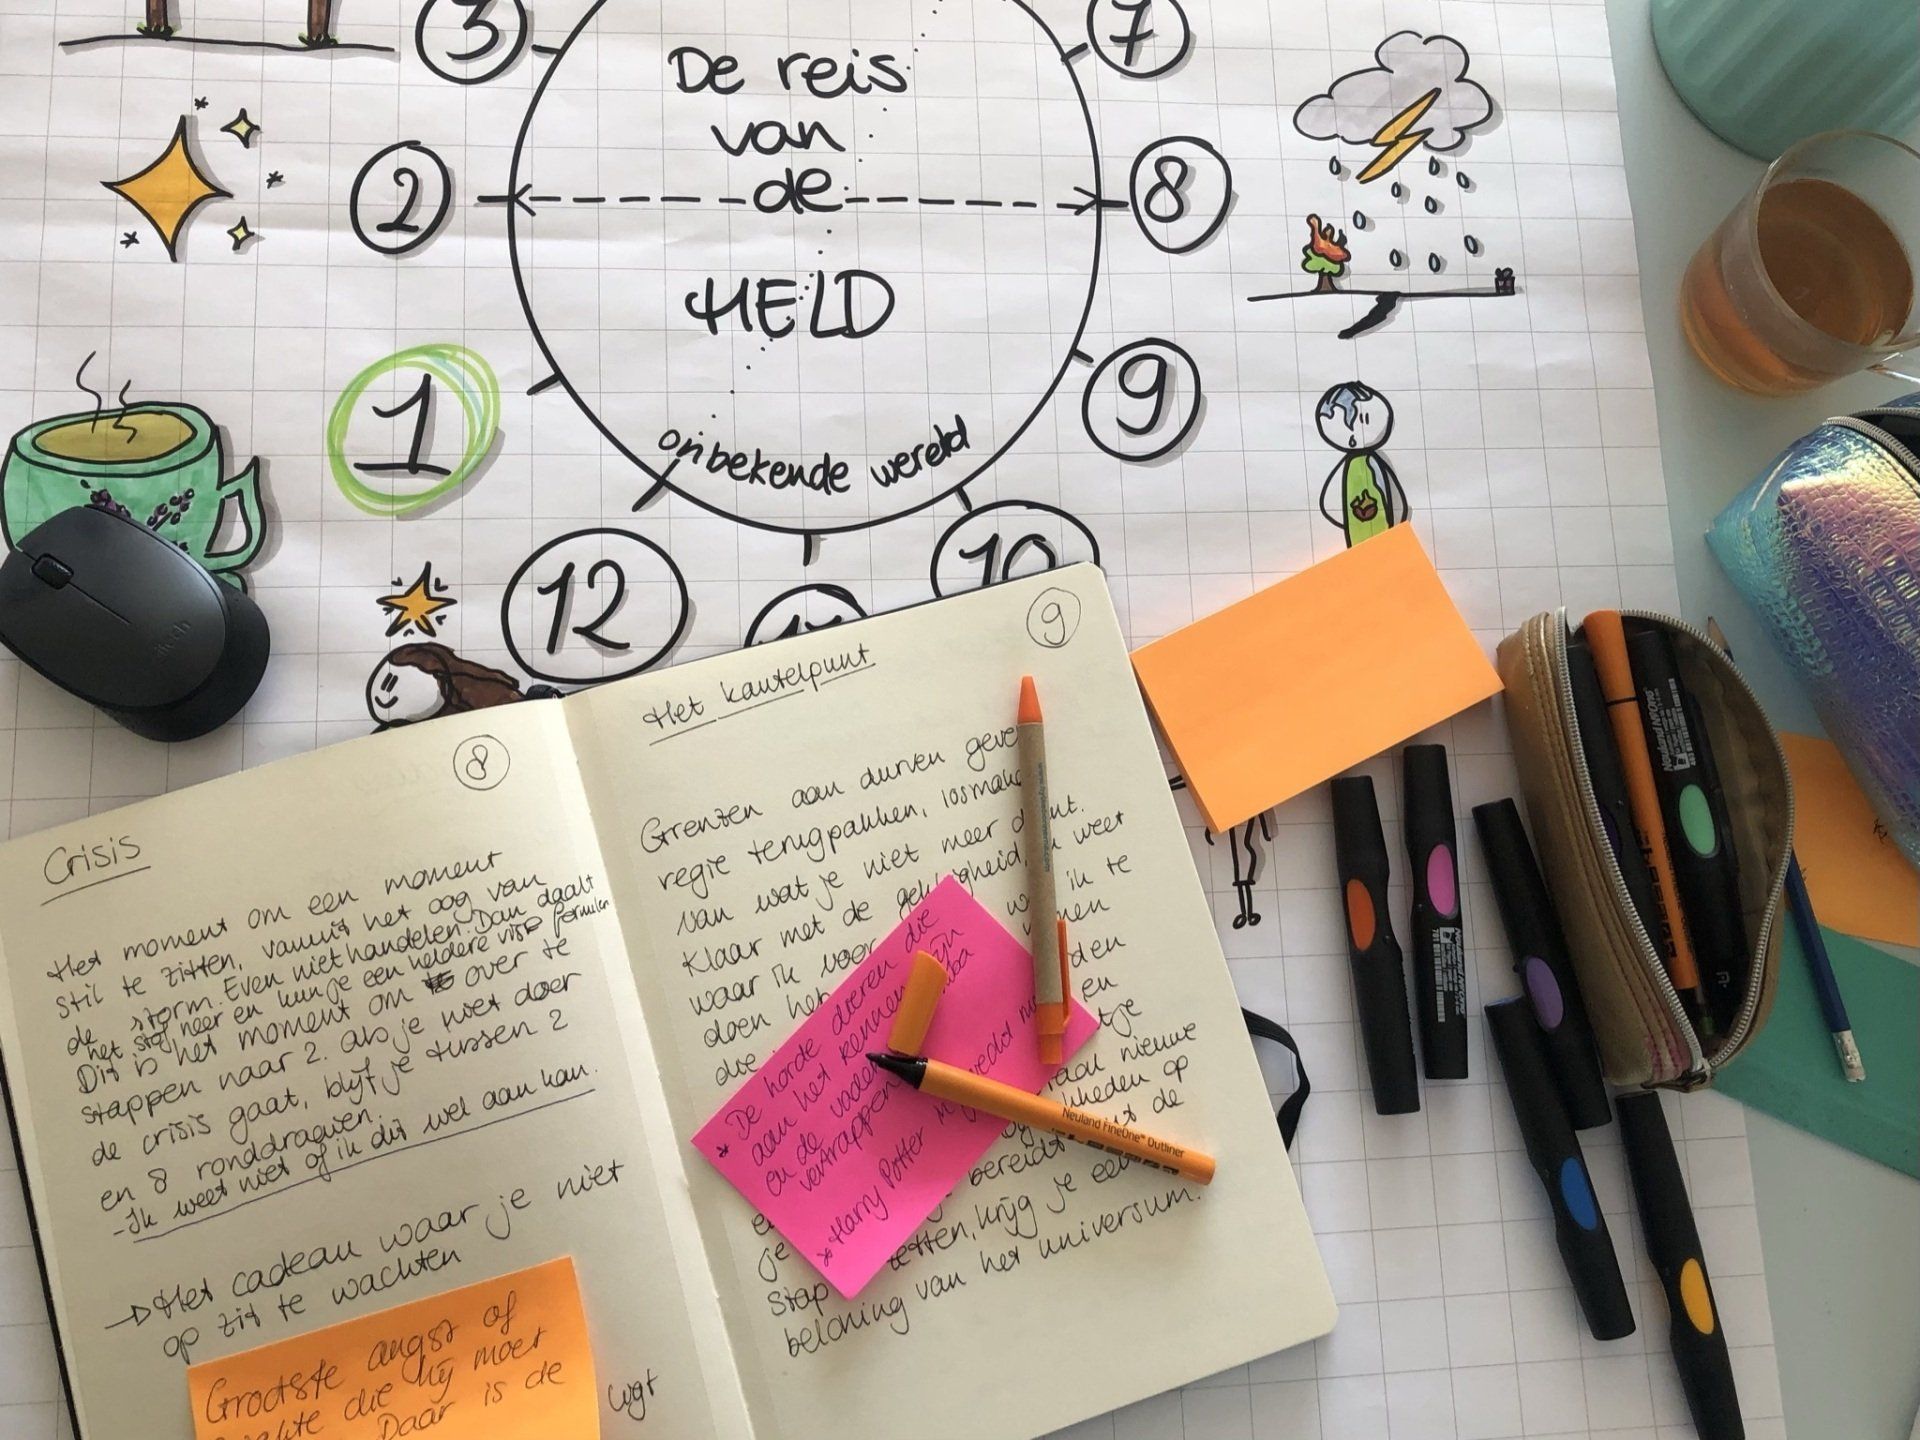 3
7
De reis
van
de
HELD
2
8
1
9
onbekende wereld
12
10
11
8
Crisis
Het moment om een moment
stil te zitten, vanuit het oog van
de storm. Even niet handelen. Dan daalt
het stof neer en kun je een heldere visie formulen
Dit is het moment om over te
stappen naar 2. als je niet door
de crisis gaat, blijf je tussen 2
en 8 ronddraaien.
-Ik weet niet of ik dit wel aan kan.
→ Het cadeau waar je niet
op zit te wachten
Grootste angst of
die hij moet
Daar is de
ligt
9
Het kantelpunt
Grenzen aan durven geve
regie terugpakken, losmake
van wat je niet meer d nt.
Klaar met de gek igheid, weet
waar ik voor ik te
doen he
die
den
en
tje
nieuwe
kheden op
de
bereidt
je een
stap zetten, krijg je
beloning van het universum.
* De horde dieren die
aan het rennen zijn
en de vader
vertrappen
* Harry Potter
Neuland FineOne® Outliner